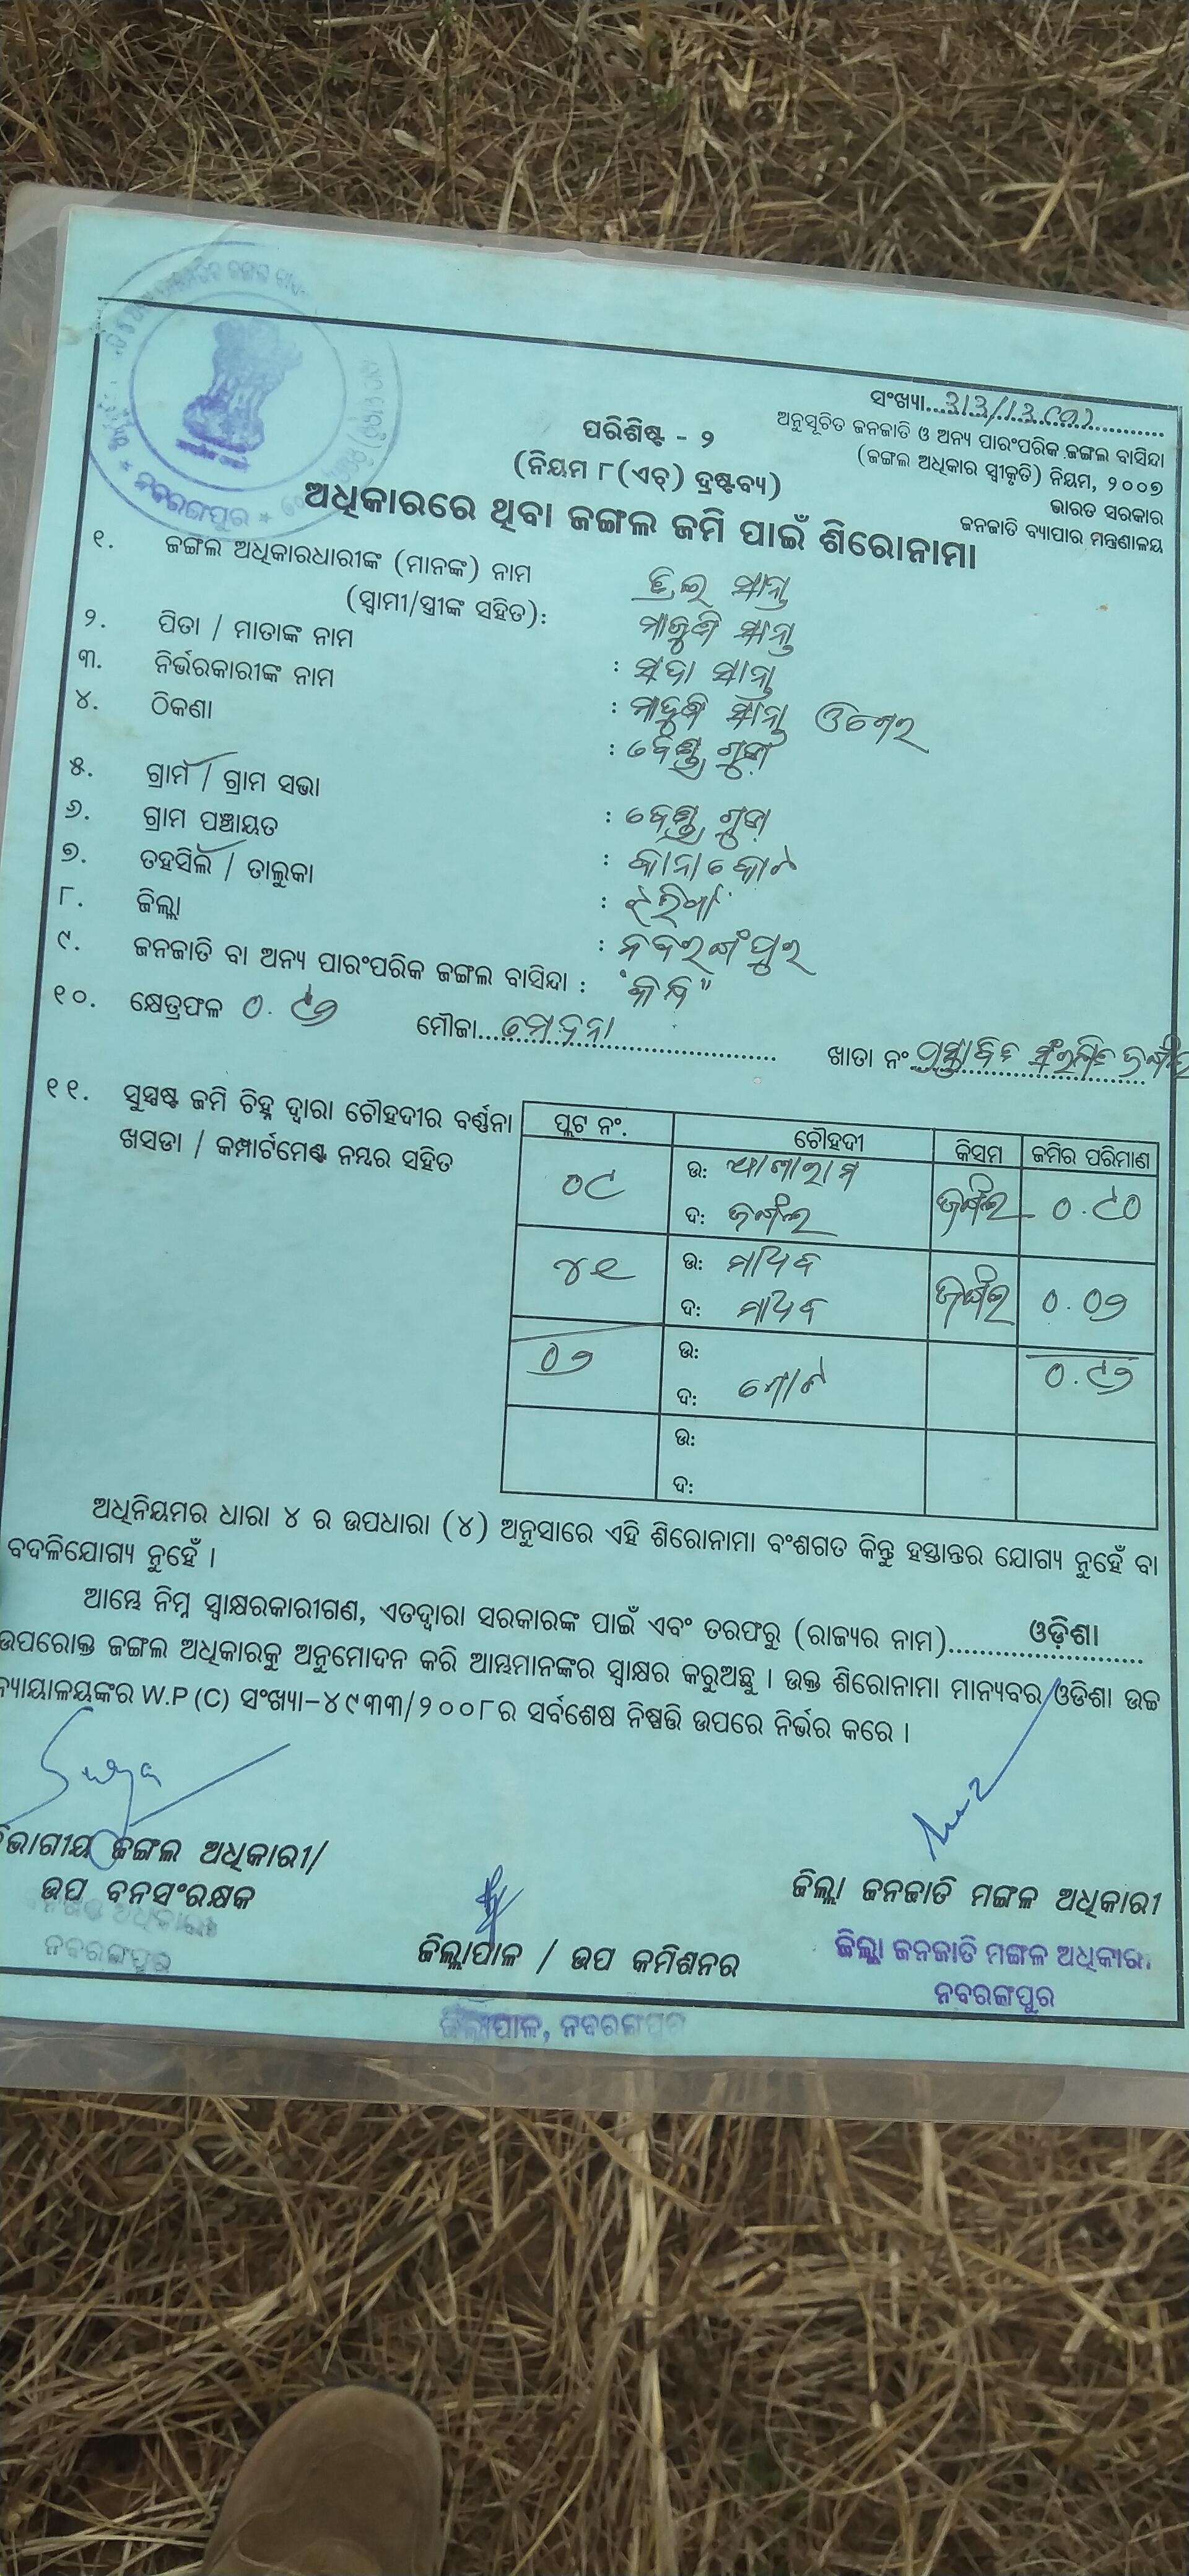 ନବରଙ୍ଗପୁର
ସଂଖ୍ୟା
ଅନୁସୂଚିତ ଜନଜାତି ଓ ଅନ୍ୟ ପାରଂପରିକ ଜଙ୍ଗଲ ବାସିନ୍ଦା
(ଜଙ୍ଗଲ ଅଧିକାର ସ୍ୱୀକୃତି) ନିୟମ, ୨୦୦୭
ଭାରତ ସରକାର
ଜନଜାତି ବ୍ୟାପାର ମନ୍ତ୍ରଣାଳୟ
ପରିଶିଷ୍ଟ - ୨
(ନିୟମ ୮(ଏଚ୍) ଦ୍ରଷ୍ଟବ୍ୟ)
ଅଧିକାରରେ ଥିବା ଜଙ୍ଗଲ ଜମି ପାଇଁ ଶିରୋନାମା
୧. ଜଙ୍ଗଲ ଅଧିକାରଧାରୀଙ୍କ (ମାନଙ୍କ) ନାମ
(ସ୍ୱାମୀ/ସ୍ତ୍ରୀଙ୍କ ସହିତ):
୨. ପିତା / ମାତାଙ୍କ ନାମ :
୩. ନିର୍ଭରକାରୀଙ୍କ ନାମ :
୪. ଠିକଣା :
୫. ଗ୍ରାମ / ଗ୍ରାମ ସଭା :
୬. ଗ୍ରାମ ପଞ୍ଚାୟତ :
୭. ତହସିଲ / ତାଲୁକା : ଝରିଗାଁ
୮. ଜିଲ୍ଲା : ନବରଙ୍ଗପୁର
୯. ଜନଜାତି ବା ଅନ୍ୟ ପାରଂପରିକ ଜଙ୍ଗଲ ବାସିନ୍ଦା :
୧୦. କ୍ଷେତ୍ରଫଳ ୦.୯୭ ମୌଜା ଖାତା ନଂ
୧୧. ସୁସ୍ପଷ୍ଟ ଜମି ଚିହ୍ନ ଦ୍ୱାରା ଚୌହଦୀର ବର୍ଣ୍ଣନା
ଖସଡା / କମ୍ପାର୍ଟମେଣ୍ଟ ନମ୍ବର ସହିତ
ପ୍ଲଟ ନଂ. ଚୌହଦୀ କିସମ ଜମିର ପରିମାଣ
୦୯ ଉ: ଜଙ୍ଗଲ ୦.୯୦
ଦ: ଜଙ୍ଗଲ
୪୧ ଉ: ମାଧବ ଜଙ୍ଗଲ ୦.୦୭
ଦ: ମାଧବ
୦୨ ଉ: ୦.୯୭
ଦ: ମୋଟ
ଉ:
ଦ:
ଅଧିନିୟମର ଧାରା ୪ ର ଉପଧାରା (୪) ଅନୁସାରେ ଏହି ଶିରୋନାମା ବଂଶଗତ କିନ୍ତୁ ହସ୍ତାନ୍ତର ଯୋଗ୍ୟ ନୁହେଁ ବା
ବଦଳିଯୋଗ୍ୟ ନୁହେଁ ।
ଆମ୍ଭେ ନିମ୍ନ ସ୍ୱାକ୍ଷରକାରୀଗଣ, ଏତଦ୍ଦ୍ୱାରା ସରକାରଙ୍କ ପାଇଁ ଏବଂ ତରଫରୁ (ରାଜ୍ୟର ନାମ) ଓଡ଼ିଶା
ଉପରୋକ୍ତ ଜଙ୍ଗଲ ଅଧିକାରକୁ ଅନୁମୋଦନ କରି ଆମ୍ଭମାନଙ୍କର ସ୍ୱାକ୍ଷର କରୁଅଛୁ । ଉକ୍ତ ଶିରୋନାମା ମାନ୍ୟବର ଓଡିଶା ଉଚ୍ଚ
ନ୍ୟାୟାଳୟଙ୍କର W.P (C) ସଂଖ୍ୟା-୪୯୩୩/୨୦୦୮ର ସର୍ବଶେଷ ନିଷ୍ପତ୍ତି ଉପରେ ନିର୍ଭର କରେ ।
ବିଭାଗୀୟ ଜଙ୍ଗଲ ଅଧିକାରୀ/
ଉପ ବନସଂରକ୍ଷକ
ନବରଙ୍ଗପୁର
ଜିଲ୍ଲାପାଳ / ଉପ କମିଶନର
ଜିଲ୍ଲାପାଳ, ନବରଙ୍ଗପୁର
ଜିଲ୍ଲା ଜନଜାତି ମଙ୍ଗଳ ଅଧିକାରୀ
ଜିଲ୍ଲା ଜନଜାତି ମଙ୍ଗଳ ଅଧିକାରୀ
ନବରଙ୍ଗପୁର